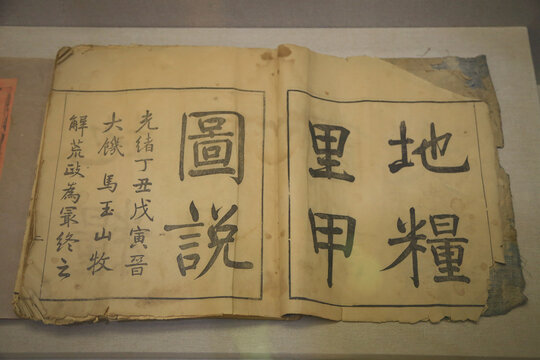 地糧
里甲
圖說
光緒丁丑戊寅晉
大饑馬玉山牧
解荒政為最終云